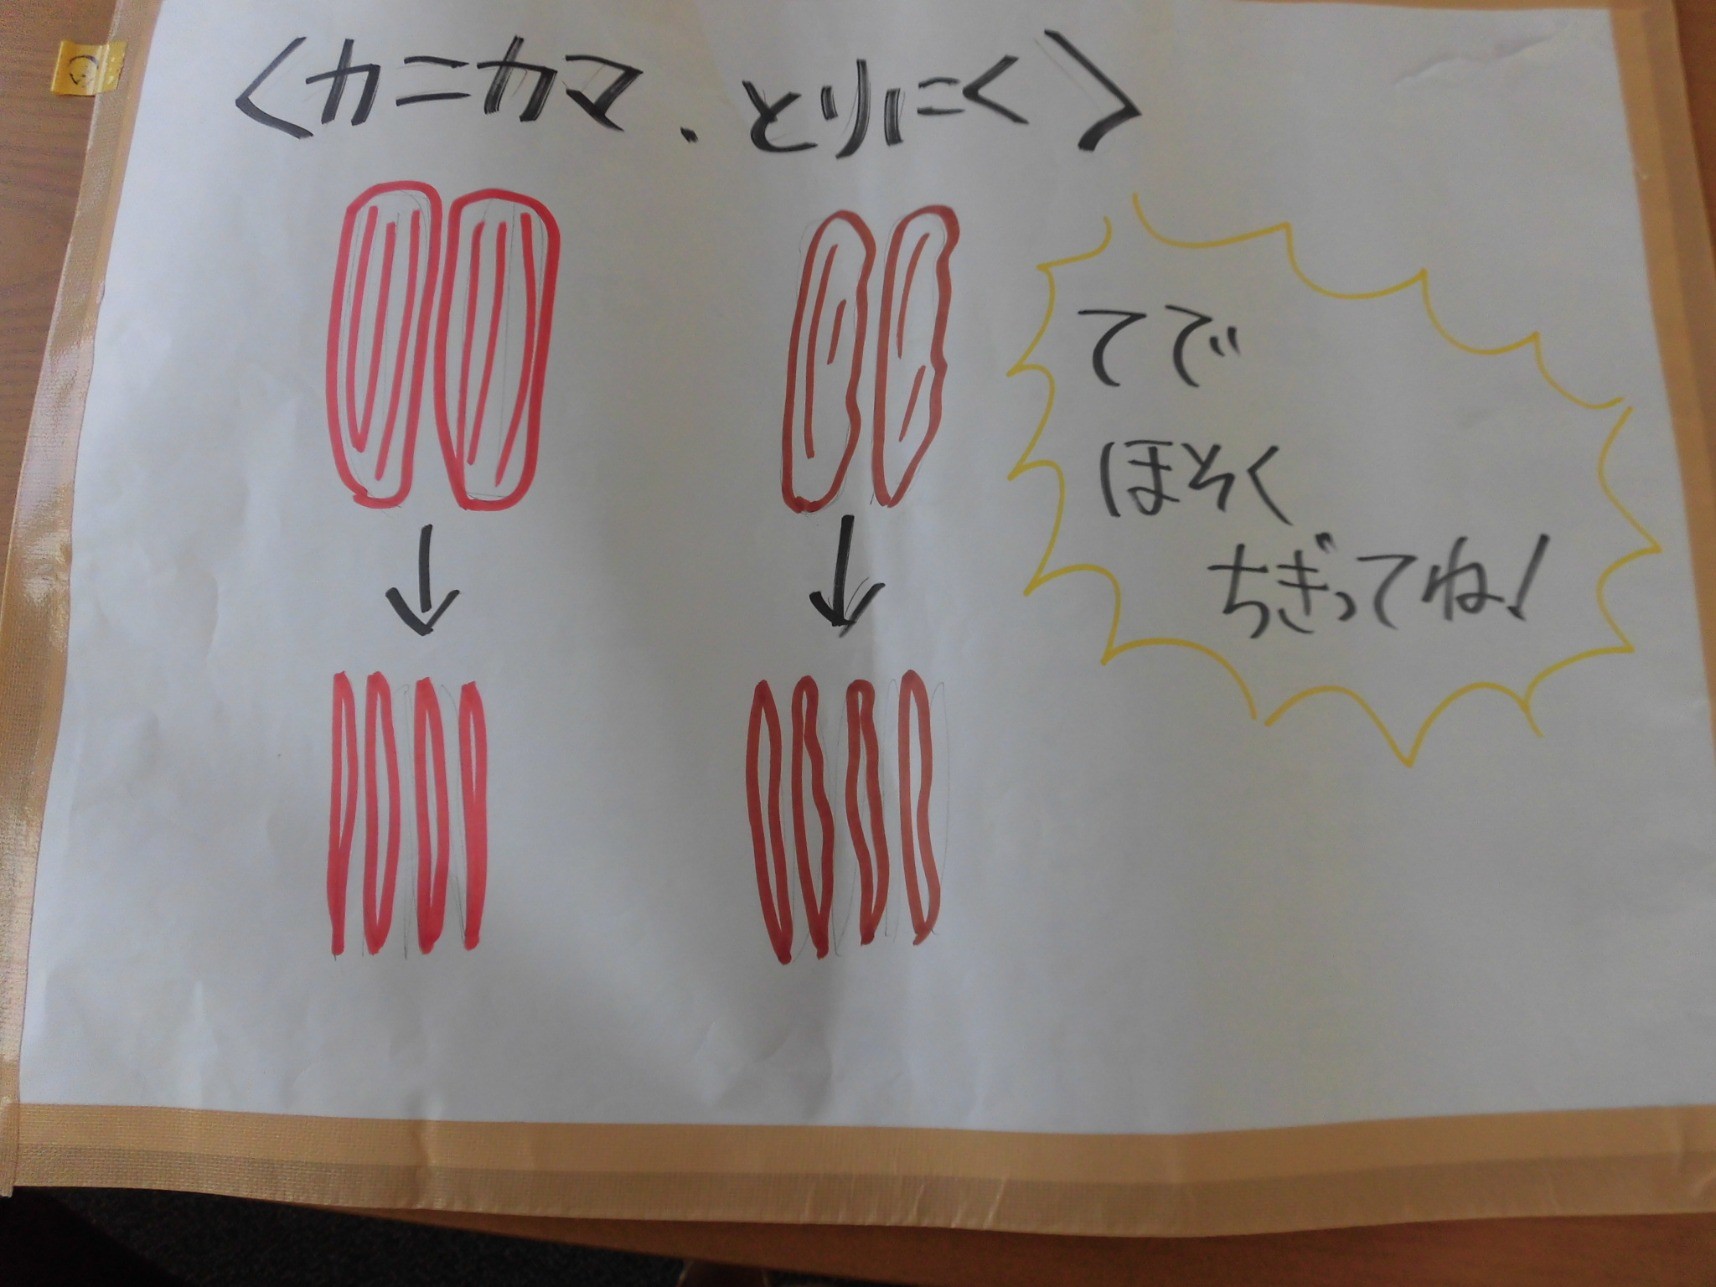 〈カニカマ、とりにく〉
てで
ほそく
ちぎってね!